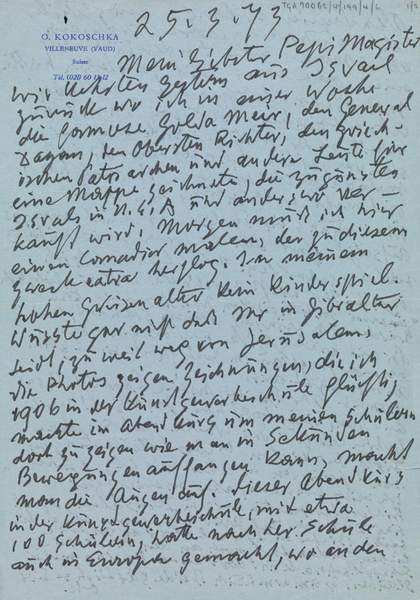 TGA 20062/4/199/4/2
1/2
25.3.73
O. KOKOSCHKA
VILLENEUVE (VAUD)
Suisse
Mein lieber Pepi Magister
wir kehrten gestern aus Israel
zurück wo ich in einer Woche
die famose Golda Meir, den General
Dayan, den Obersten Richter, den griech-
ischen Patriarchen und andere Leute für
eine Mappe zeichnete, die zugunsten
Israels in U.S.A und anderswo ver-
kauft wird. Morgen muss ich hier
einen malen, der zu diesem
Zweck extra herflog. In meinem
hohen Greisenalter kein Kinderspiel.
Wusste gar nicht dass Ihr in Gibraltar
seid, zu weit weg von Jerusalem.
Die Photos zeigen Zeichnungen, die ich
1906 in der Kunstgewerbeschule
machte im Abendkurs um meinen Schülern
dort zu zeigen wie man in Sekunden
Bewegungen auffangen kann, macht
man die Augen auf. Dieser Abendkurs
in der Kunstgewerbeschule, mit etwa
100 Schülern, hatte nachher Schule
auch in Europa gemacht, wo an den